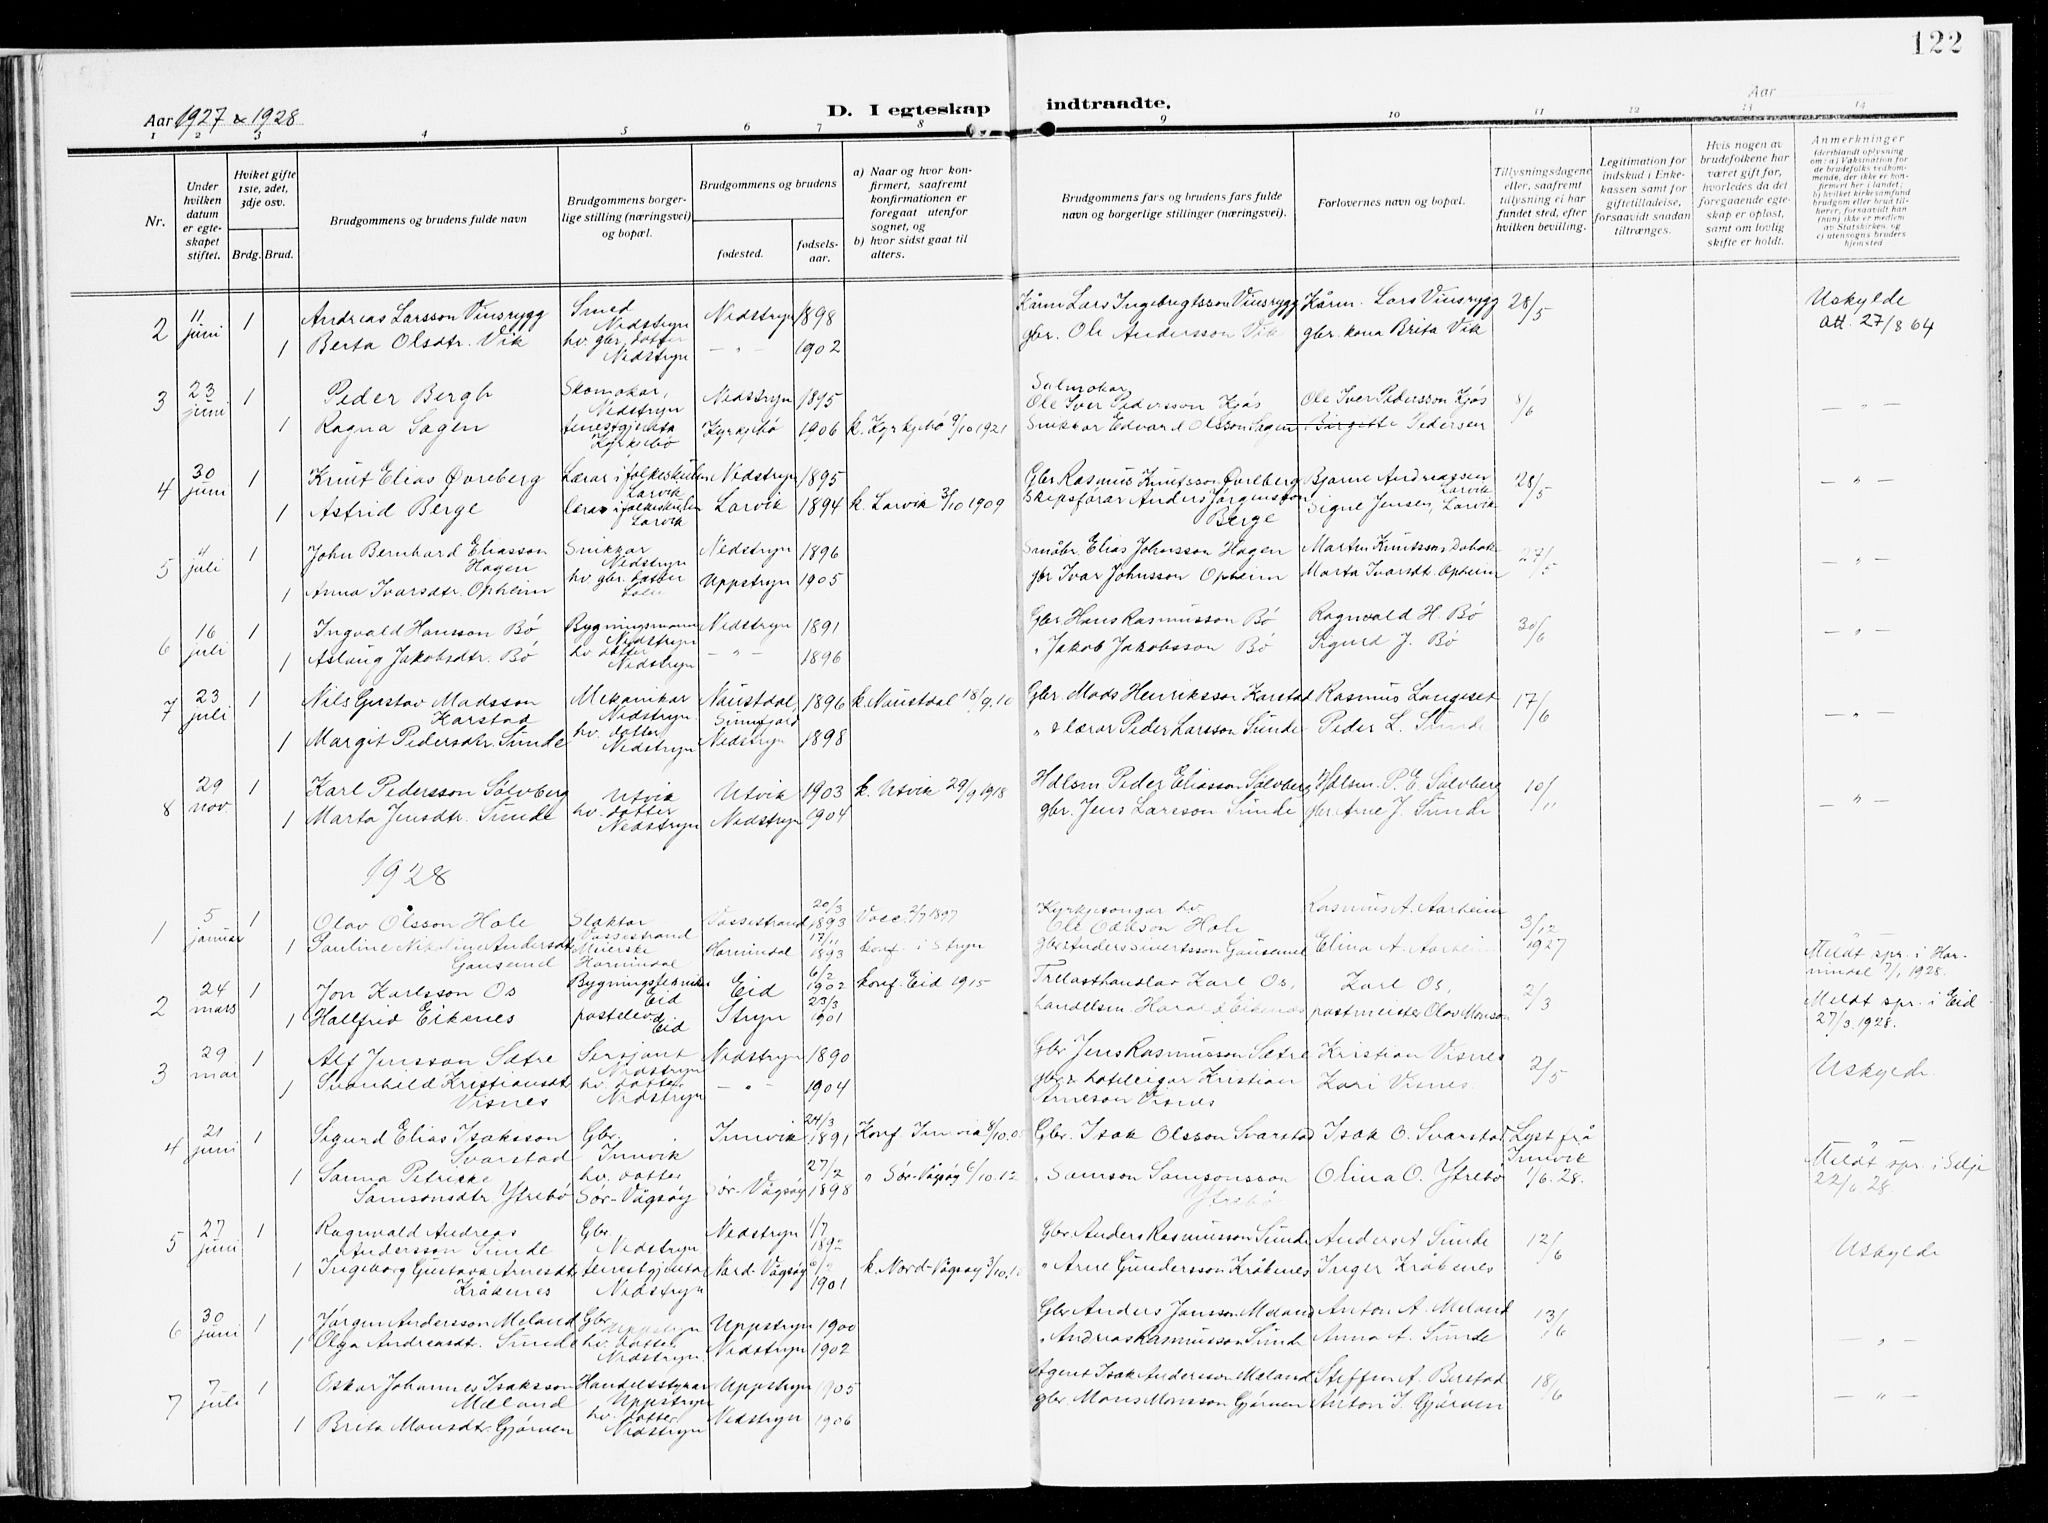 122
Aar 1927 & 1928
D. I egteskap indtraadte.
Aar
1 2 3 4 5 6 7 8 9 10 11 12 13 14
Nr.
Under hvilken datum er egteskapet stiftet.
Hviket gifte 1ste, 2det, 3dje osv.
Brdg. Brud.
Brudgommens og brudens fulde navn
Brudgommens borgerlige stilling (næringsvei) og bopæl.
Brudgommens og brudens
fødested.
fødselsaar.
a) Naar og hvor konfirmert, saafremt konfirmationen er foregaat utenfor sognet, og
b) hvor sidst gaat til alters.
Brudgommens fars og brudens fars fulde navn og borgerlige stillinger (næringsvei).
Forlovernes navn og bopæl.
Tillysningsdagene eller, saafremt tillysning ei har fundet sted, efter hvilken bevilling.
Legitimation for indskud i Enkekassen samt for giftetilladelse, forsaavidt saadan tiltrænges.
Hvis nogen av brudefolkene har været gift før, hvorledes da det foregaaende egteskap er opløst, samt om lovlig skifte er holdt.
Anmerkninger (deriblandt oplysning om: a) Vaksination for de brudefolks vedkommende, der ikke er konfirmert her i landet; b) hvilket kirkesamfund brudgom eller brud tilhører, forsaavidt han (hun) ikke er medlem av Statskirken, og c) utensogns bruders hjemsted
2 11 juni 1 Andreas Larsson Vinsrygg Smed Nedstryn Nedstryn 1898 Kårm Lars Ingebregtsson Vinsrygg Kårm. Lars Vinsrygg 28/5 Uskylde att. 27/8 64
1 Berta Olsdtr. Vik hv. gbr, dotter Nedstryn — " — 1902 gbr. Ole Andersson Vik gbr. kona Brita Vik
3 23 juni 1 Peder Bergh Skomakar, Nedstryn Nedstryn 1895 Salmakar Ole Iver Pedersson Kjøs Ole Iver Pedersson Kjøs 8/6 — " —
1 Ragna Sagen tenestgjenta Kyrkjebø Kyrkjebø 1906 k. Kyrkjebø 9/10 1921 Snikkar Edvard Olsson Sagen Birgitte Pedersen
4 30 juni 1 Knut Elias Øvreberg Lærar i folkeskulen Larvik Nedstryn 1895 Gbr Rasmus Knutsson Øvreberg Bjarne Andreassen Larvik 28/5 — " —
1 Astrid Berge lærar i folkeskulen Larvik Larvik 1894 k. Larvik 3/10 1909 Skipsførar Anders Jørgenson Berge Signe Jensen, Larvik
5 4 juli 1 John Bernhard Eliasson Hagen Snikkar Nedstryn Nedstryn 1896 Småbr. Elias Johnsson Hagen Martin Knutsson 27/5 — " —
1 Anna Ivarsdtr. Opheim hv gbr. dotter Uppstryn 1905 gbr Ivar Johnsson Opheim Marta Ivarsdt. Opheim
6 16 juli 1 Ingvald Hansson Bø Bygningsmann Nedstryn Nedstryn 1891 Gbr Hans Rasmusson Bø Ragnvald H. Bø 30/6 — " —
1 Aslaug Jakobsdtr. Bø hv. dotter Nedstryn — " — 1896 " Jakob Jakobsson Bø Sigurd J. Bø
7 23 juli 1 Nils Gustav Madsson Karstad Mekanikar Nedstryn Naustdal, Sunnfjord 1896 k. Naustdal 18/9.10 Gbr. Mads Henriksson Karstad Rasmus Langeset 17/6 — " —
1 Margit Pedersdtr. Sunde hv. dotter Nedstryn Nedstryn 1898 " & lærar Peder Larsson Sunde Peder L. Sunde
8 29 nov. 1 Karl Pedersson Sølvberg Utvik Utvik 1903 k. Utvik 29/9 1918 Hdlsm Peder Eliasson Sølvberg Hdlsm. P. E. Sølvberg 10/11 — " —
1 Marta Jensdtr. Sunde hv. dotter Nedstryn Nedstryn 1904 gbr. Jens Larsson Sunde gbr Arne J. Sunde
1928
1 5 januar 1 Olav Olsson Hole Slaktar Vassestrand Vassestrand 20/3 1893 Vacc. 2/7 1897 Kyrkjesongar hv. Ole Hole Rasmus A. Aarheim 3/12 1927
1 Pauline Nikoline Andersdt. Gausemel Meierske Hornindal Hornindal 17/11 1893 konf. i Stryn gbr Anders Sivertsson Gausemel Elina A. Aarheim Meldt spr. i Hornindal 7/1 1928.
2 24 mars 1 Jon Karlsson Os Bygningsteknikar Eid Eid 6/2 1902 konf. Eid 1915 Trelasthandlar Karl Os, Karl Os, 2/3 Meldt spr. i Eid 27/3.1928.
1 Hallfrid Eikenes postelev Eid Stryn 23/3 1901 handelsm. Harald Eikenes postmeister Olav Monson
3 29 mai 1 Alf Jensson Sætre Sersjant Nedstryn Nedstryn 1890 Gbr Jens Rasmusson Sætre Kristian Visnes 2/5 Uskylde.
1 Svanhild Kristiansdt. Visnes hv. dotter Nedstryn — " — 1904 gbr & hoteleigar Kristian Arneson Visnes Kari Visnes.
4 21 juni 1 Sigurd Elias Isaksson Svarstad Gbr. Innvik Innvik 24/3 1891 Konf. Innvik 8/10.05 Gbr. Isak Olsson Svarstad Isak O. Svarstad Lyst frå Innvik 1/6. 28. Meldt spr. i Selje 22/6. 28.
1 Sanna Petrikke Samsonsdtr Ytrebø hv. dotter Sør-Vågsøy Sør-Vågsøy 27/2 1898 " Sør-Vågsøy 6/10.12 " Samson Samsonsson Ytrebø Olina O. Ytrebø
5 27 juni 1 Ragnvald Andreas Andersson Sunde Gbr. Nedstryn Nedstryn 1/7 1892 Gbr Anders Rasmusson Sunde Anders Sunde 12/6 Uskylde
1 Ingeborg Gustava Arnesdt. Kråkenes tenestgjenta Nedstryn Nord-Vågsøy 1901 k. Nord-Vågsøy " Arne Gundersson Kråkenes Inger Kråkenes
6 30 juni 1 Jørgen Andersson Meland Gbr. Uppstryn Uppstryn 1900 Gbr Anders Jonsson Meland Anton A. Meland 13/6 — " —
1 Olga Andreasdt. Sunde hv. dotter Nedstryn. Nedstryn 1902 " Andreas Rasmusson Sunde Anna A. Sunde
7 7 juli 1 Oskar Johannes Isaksson Mæland Handelsstyrar Uppstryn Uppstryn 1905 Agent Isak Andersson Mæland Steffen A. Berstad 18/6 — " —
1 Brita Monsdtr. Gjørven hv. dotter Nedstryn Nedstryn 1906 gbr Mons Monsson Gjørven Anton I. Gjørven